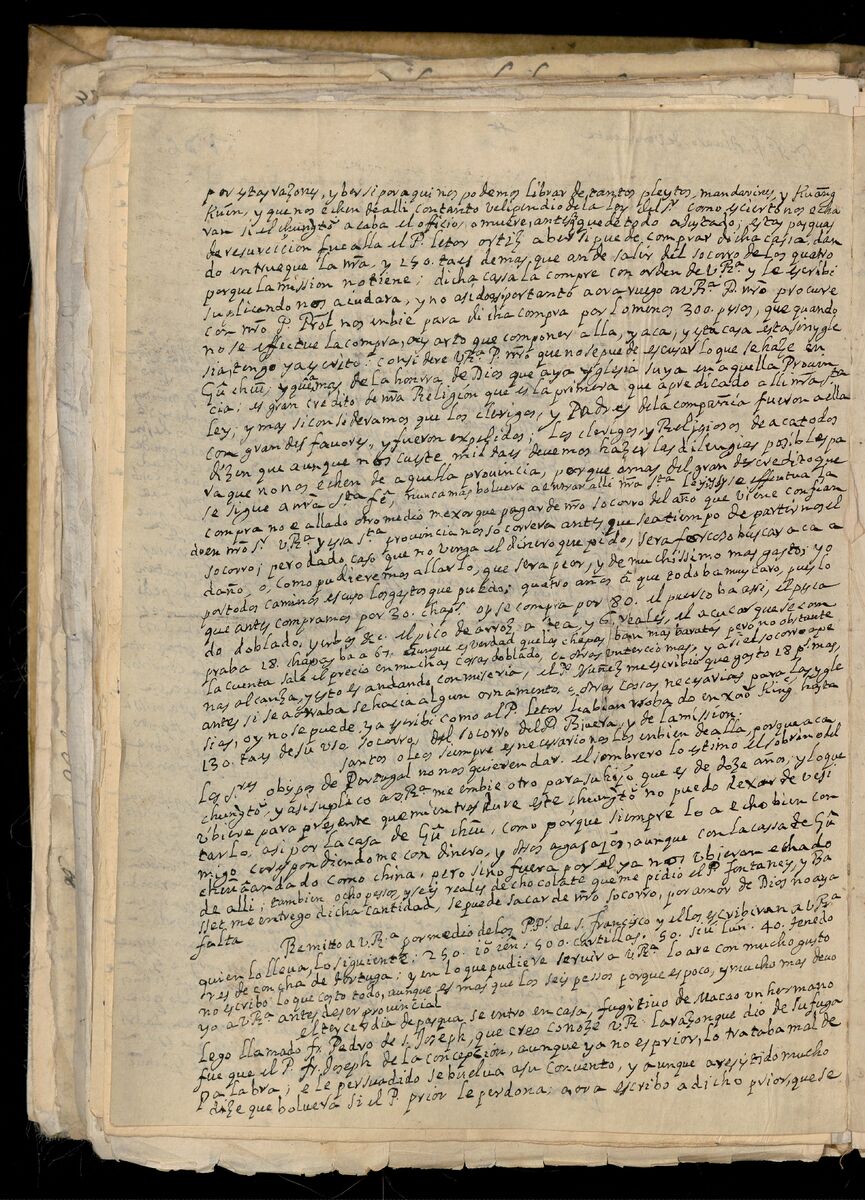 por estas razones, y ber si por aqui nos podemos librar de tantos pleytos, mandarines, y Kuāng
Kuen, y que nos echen de alli con tanto velipendio de la Ley del Sr. como es cierto nos echa
ran si el chungtŏ acaba el officio, o muere, antes que de todo ajustado; estas pasquas
de resurecçion fue alla el P. letor ortiz a ber si puede comprar dicha cassa, dan
do en trueque la nra, y 250. taes demas, que an de salir del socorro de los quatro
porque la mission no tiene; dicha casa la compre con orden de V Ra. y le escribi
suplicando nos acudara, y no a sido; por tanto aora ruego a V Ra. P. nro procure
con nro P. Prol nos enbie para dicha compra por lo menos 300. pesos, que quando
no se effectue la compra, ay arto que componer alla, y aca, y esta casa esta sin ygle
sia tengo ya escrito: considere V Ra. P. nro que no se puede escusar lo que se haze en
Gū cheū; y que mas de la honrra de Dios que aya yglesia suya en aquella Provin
cia; es gran credito de nra Religion que es la primera que a predicado alli nra sta
Ley; y mas si consideramos que los clerigos, y Padres de la compañia fueron a ella
com grandes favores, y fueron expulsidos; los clerigos, y Religiosos de aca todos
dizen que aunque nos cueste mil taes devemos hazer las diligençias posibles pa
ra que no nos echen de aquella provincia, porque a mas del gran descredito que
se sigue a nra sta fè, nunca mas bolvera a entrar alli nra sta ley; si se effectua la
compra no e allado otro medio mexor que pagar de nro socorro del año que viene confian
do en nro Sr. V Ra. y esa sta provincia nos socorrera antes que sea tiempo de partir nos el
socorro; pero dado caso que no venga el dinero que pido, sera forcoso buscar aca a
daño, o, como pudieremos allarlo, que sera peor, y de muchissimo mas gasto; yo
por todos caminos escuso los gastos que puedo; quatro años à que todo ba muy caro, pues lo
que antes compramos por 30. chapas oy se compra por 80. el puerco ba assi, el pesca
do doblado, yerbas &c. el pico de arroz a tea, y 6 reales, el acucar que se com
praba 28. chapas ba a 67. aunque es verdad que las chapas ban mas baratas, pero no obstante
la cuenta sale el precio en muchas cosas doblado, en otras un tercio mas, y assi el socorro ape
nas alcanza, y esto es andando con miseria, el P. Nuñez me escribio que gasto 18 ps. mas,
antes si se acababa se hacia algun ornamento, o otras cosas necesarias para las ygle
sias, oy no se puede, ya escribi como al P. letor habian robado en xaŏ King hasta
130. taes de su uso, socorro, del socorro del P. Rivera, y de la mission;
Santos oleos siempre es necesario nos los enbien de alla, porque aca
Los Sres. obispos de Portugal no nos quieren dar. el sombrero lo estimo el sobrino del
chungtŏ, y asi suplico a V Ra. me embie otro para su hijo que es de doze años, y lo que
ubiere para presente que mientras dure este chungtŏ no puedo dexar de vesi
tarlo, asi por la casa de Gū cheū, como porque siempre lo a echo bien con
migo correspondiendome con dinero, y otros agasajos, aunque con la cassa de Gū
cheū andado como china, pero sino fuera por el ya nos ubieran echado
de alli; tambien ocho pesos, y seis reales de chocolate que me pidio el P. Fontaney, y Ba
sset, me entrego dicha cantidad, se puede sacar de nro socorro, por amor de Dios no aya
falta
Remitto a V Ra. por medio de los PPs. de S. Francisco y ellos escribiran a V Ra.
quien lo lleva, lo siguiente: 250. iŏ xén: 500. cartillas. 50. siū lún. 40. tenedo
res de concha de tortuga: y en lo que pudiere servir a V Ra. lo are con mucho gusto
no escribo lo que costo todo, aunque es mas que los seis pessos porque es poco, y mucho mas devo
yo a V Ra. antes de ser provincial.
el tercer dia de pasqua se entro en casa, fugitivo de Macao un hermano
Lego llamado fr. Pedro de S. Joseph, que creo conoze V R. La razon que dio de su fuga
fue que el P. fr. Joseph de la concepçion, aunque ya no es prior, lo trataba mal de
palabra; e le persuadido se buelva a su convento, y aunque a resistido mucho
dize que bolvera si el P. prior le perdona; aora escribo a dicho prior, que se